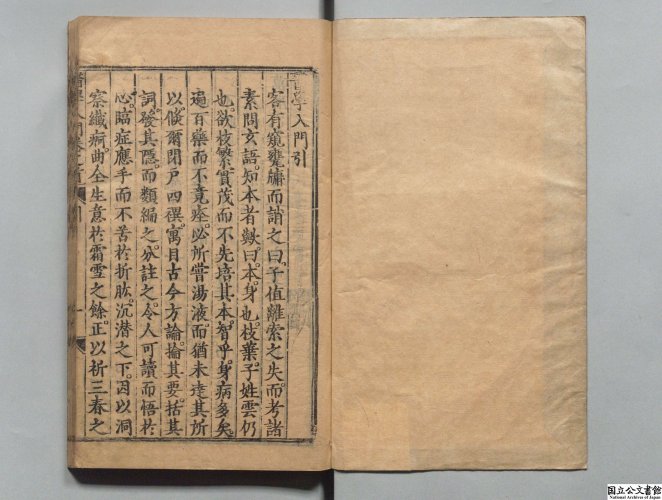 醫學入門引
客有窺甕牖而誚之曰子值離索之失而考諸
素問玄語知本者歟曰本身也枝葉子姓雲仍
也欲枝繁實茂而不先培其本智乎身病多矣
遍百藥而不竟痊必所嘗湯液而猶未達其所
以倏爾閉戶四禩寓目古今方論掄其要括其
詞發其隱而類編之分註之令人可讀而悟於
心臨症應手而不苦於折肱沉潛之下因以洞
察纖痾曲全生意於霜雪之餘正以祈三春之
醫學入門卷之首 引 一
国立公文書館
National Archives of Japan